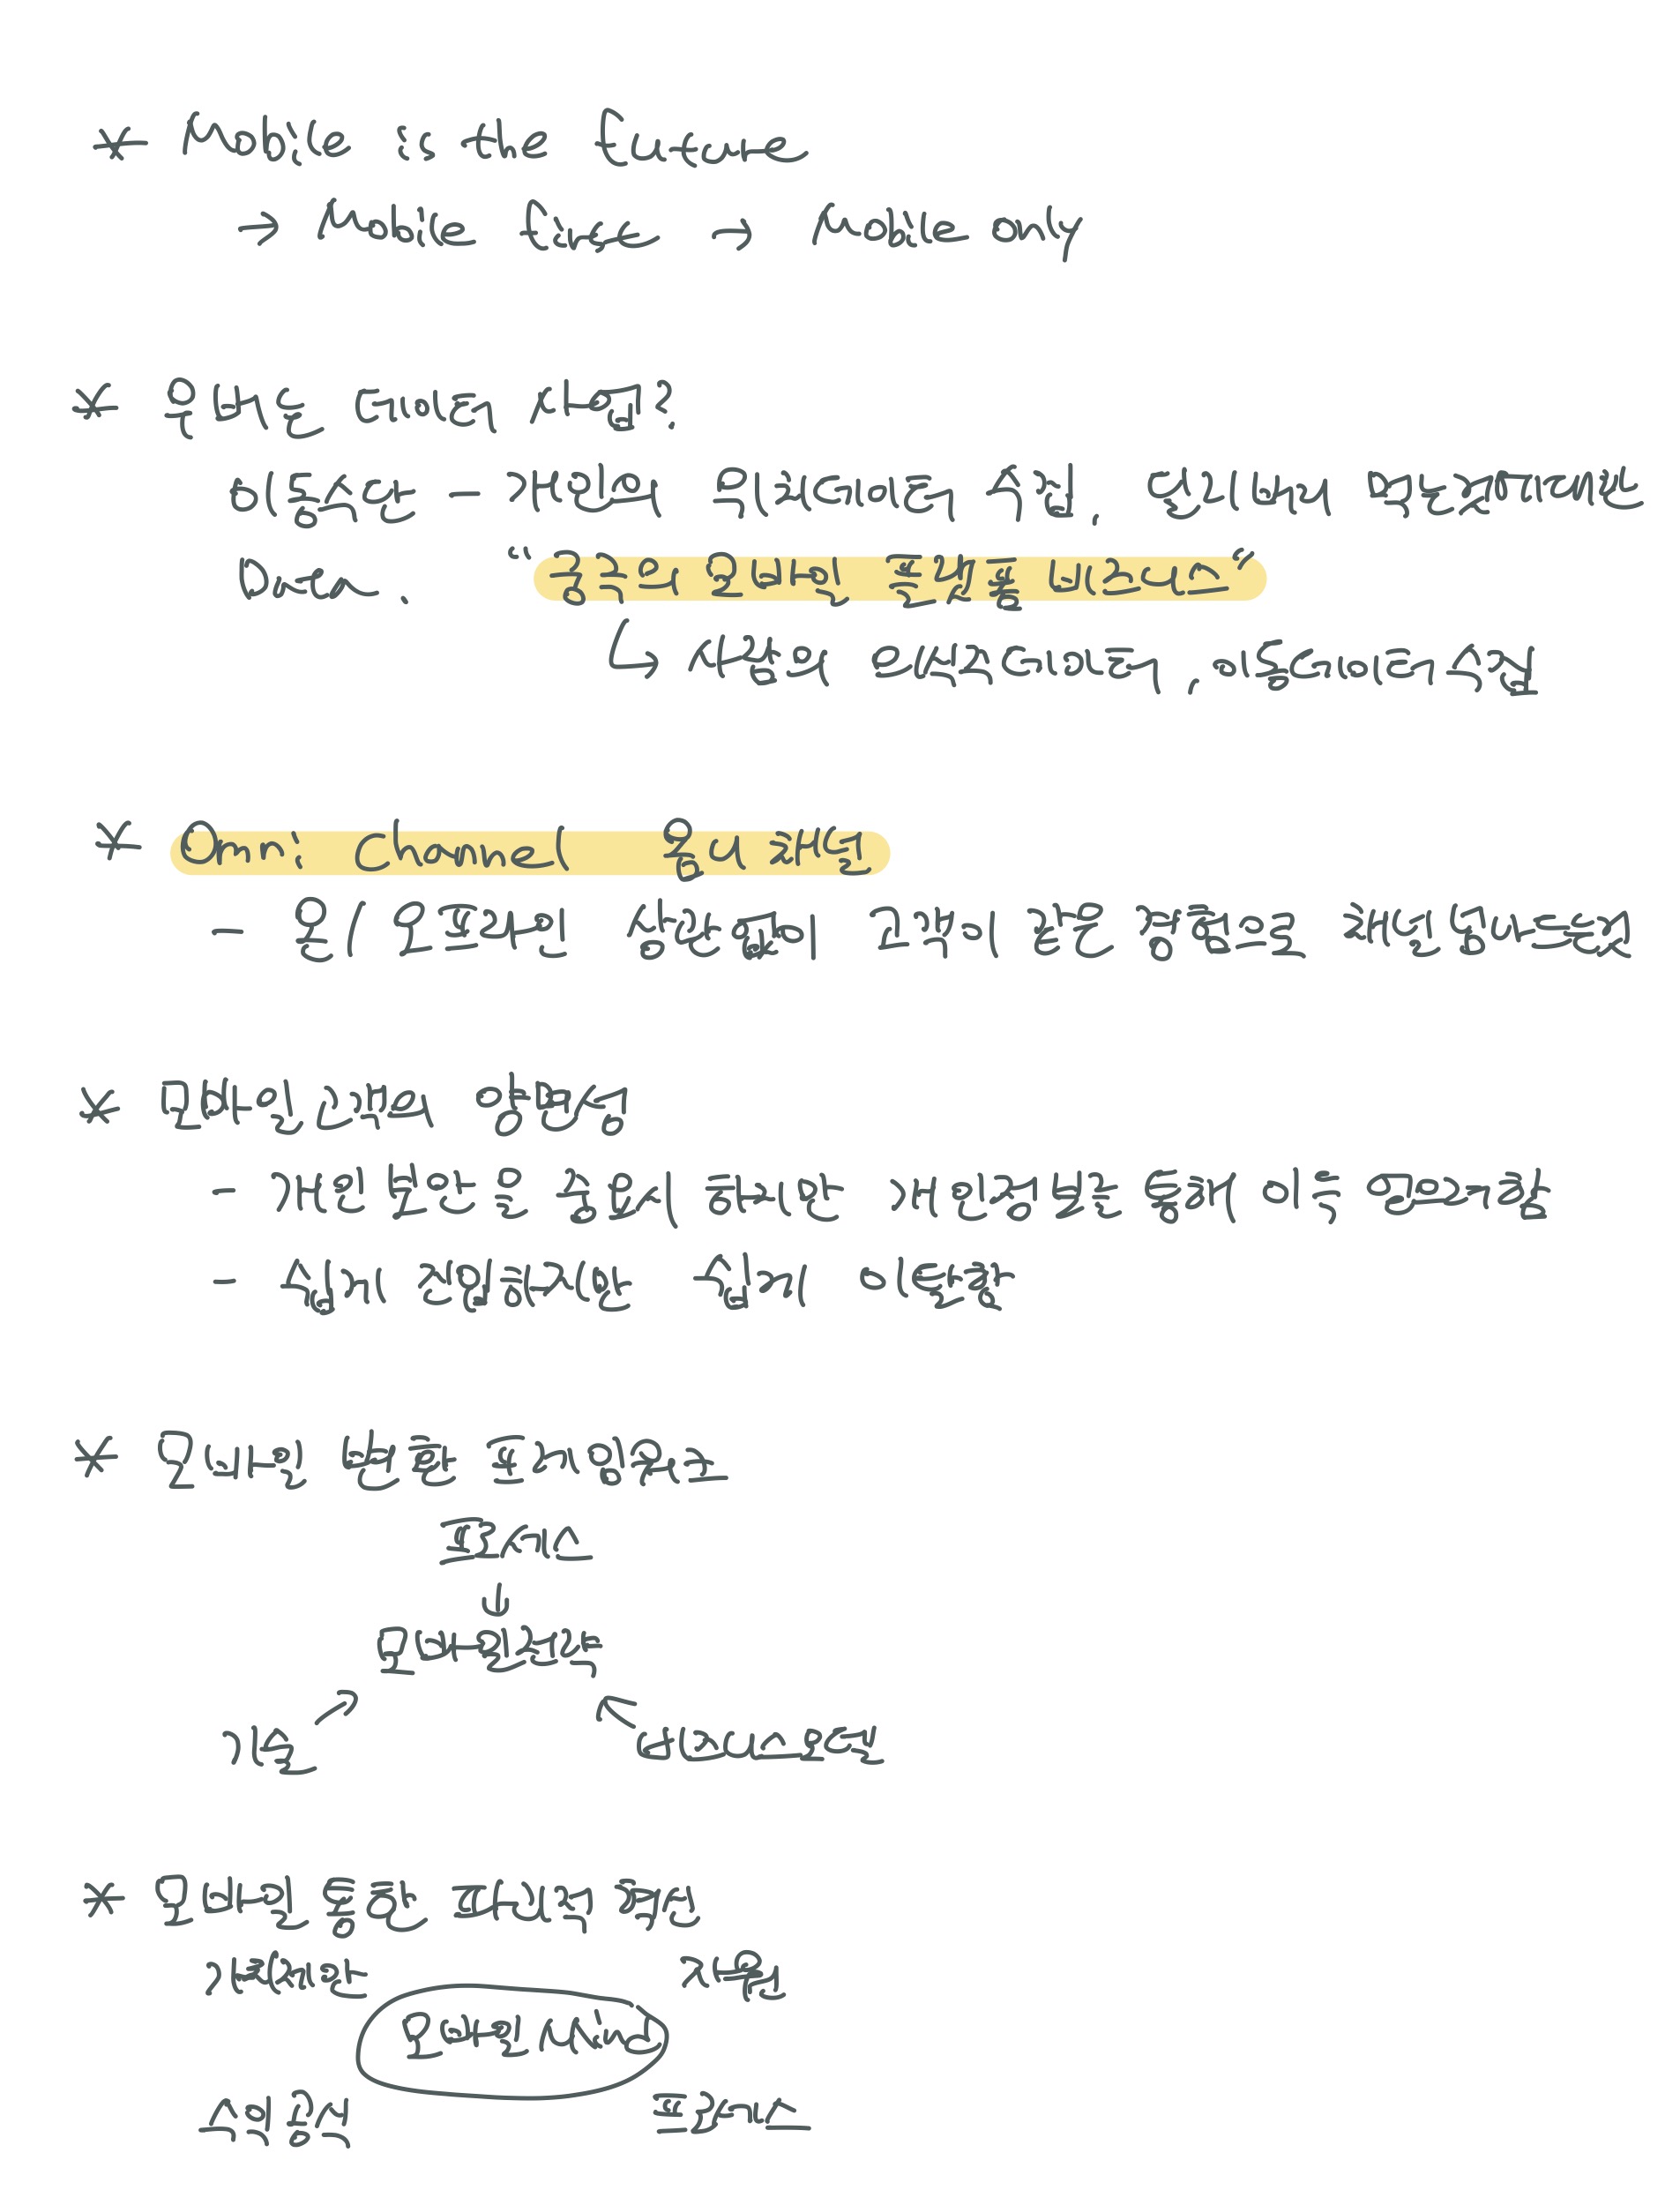 * Mobile is the future
→ Mobile first → Mobile only
* 우버는 데이터 사업?
이동수단 - 개인의 위치데이터 수집. 알리바바의 막순자데이터센
Data. "중국의 모바일 폰상품 비즈니스"
↳ 사람의 인식데이터, 이동데이터수집
* Omni channel 옴니 채널
- 온/오프라인 상관없이 고객이 같은 경험으로 체험받는것
* 모바일 산업의 양면성
- 개인 불안은 중요시 하지만 개인정보를 통해 이득 얻으려함
- 쉽게 진입하지만 쉽게 이탈함
* 모바일 변환 프레임워크
프로세스
↓
모바일전략
기술 ↗ ↖ 비지니스모델
* 모바일 통한 파괴적 혁신
가치제안 자원
모바일 Mind
수익 공식 프로세스